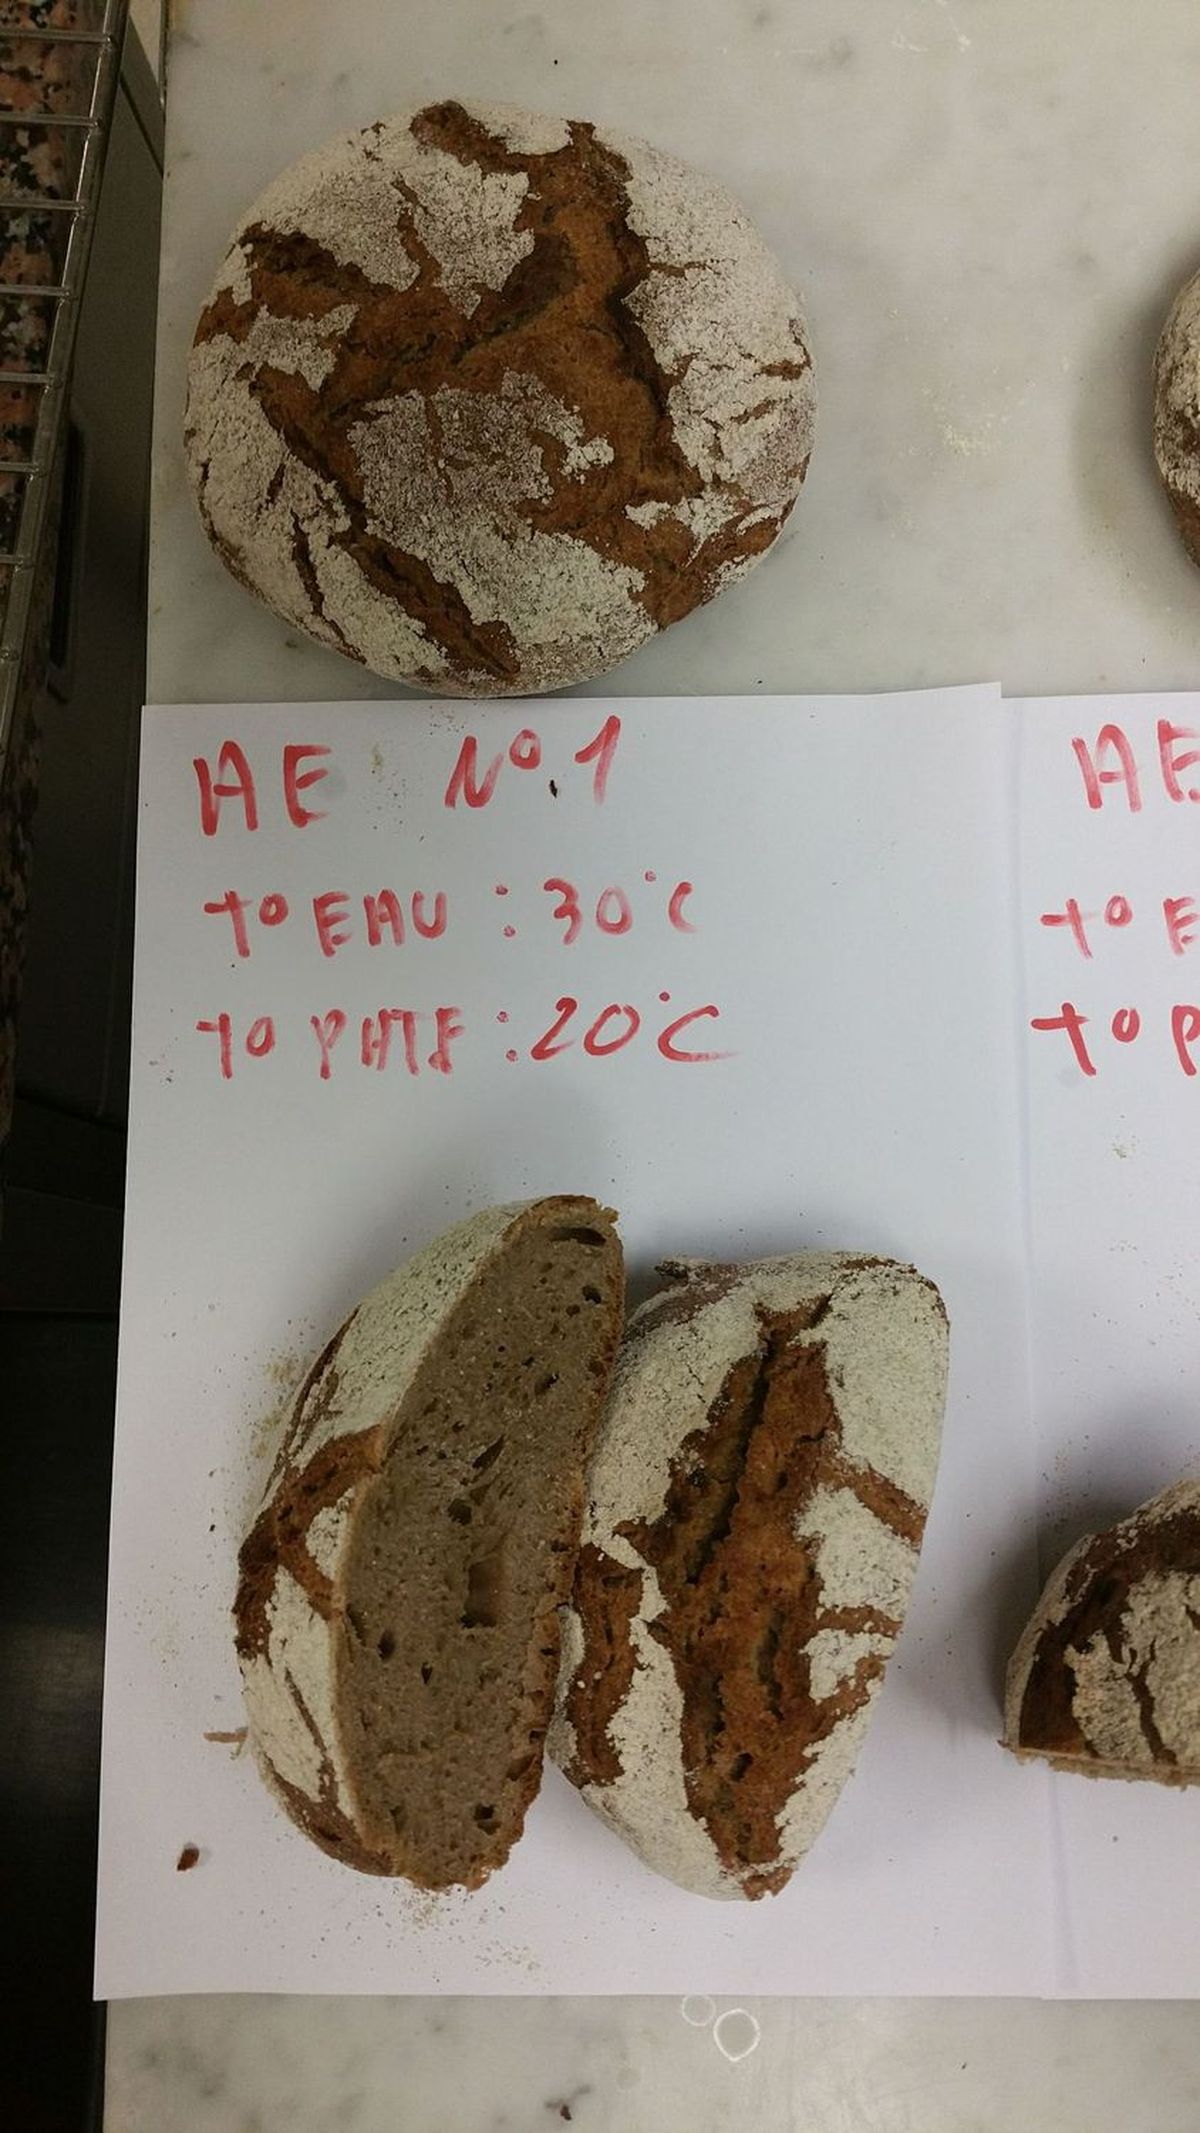 AE No.1
to EAU : 30°C
to PATE : 20°C
AE
to E
to P